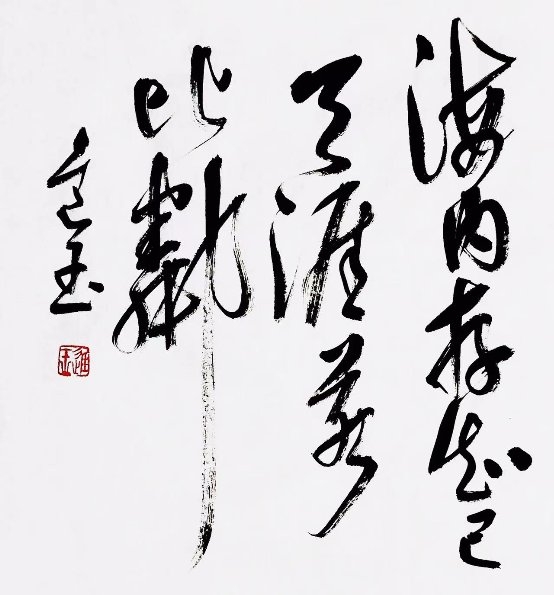 海内存知己
天涯若
比鄰
玉